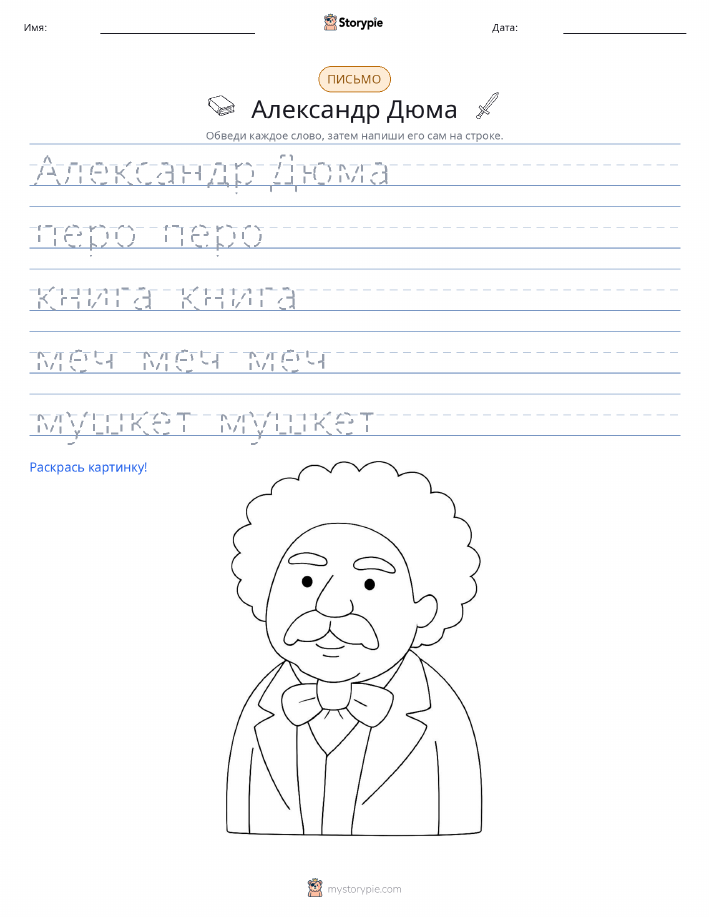 Имя:
Storypie
Дата:
ПИСЬМО
Александр Дюма
Обведи каждое слово, затем напиши его сам на строке.
Александр Дюма
перо перо
книга книга
меч меч меч
мушкет мушкет
Раскрась картинку!
mystorypie.com